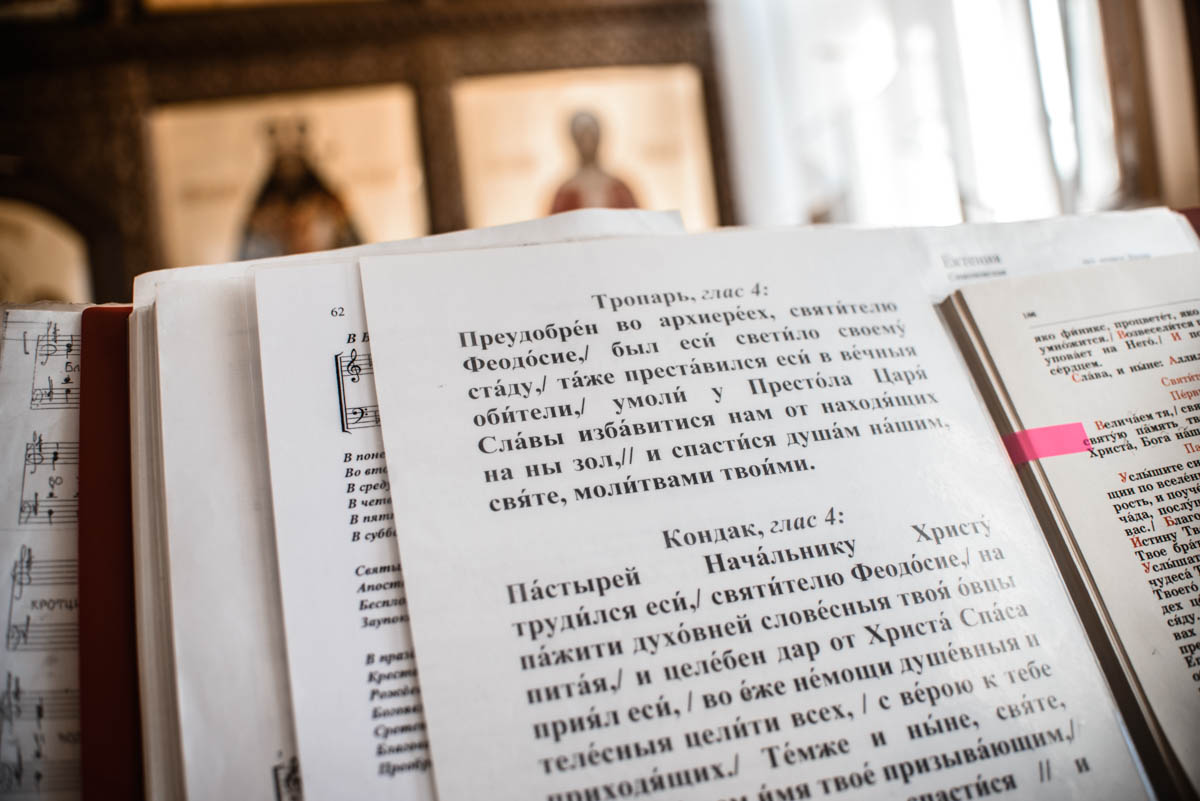 Тропарь, глас 4:
Преудобре́н во архиере́ех, святи́телю
Феодо́сие,/ был еси́ свети́ло своему́
ста́ду,/ та́же преста́вился еси́ в ве́чныя
оби́тели,/ умоли́ у Престо́ла Царя́
Сла́вы изба́витися нам от находя́щих
на ны зол,// и спасти́ся душа́м на́шим,
свя́те, моли́твами твои́ми.
Кондак, глас 4:
Па́стырей Нача́льнику Христу́
труди́лся еси́,/ святи́телю Феодо́сие,/ на
па́жити духо́вней слове́сныя твоя́ о́вцы
пита́я,/ и целе́бен дар от Христа́ Спа́са
прия́л еси́, / во е́же не́мощи душе́вныя и
теле́сныя цели́ти всех, / с ве́рою к тебе
приходя́щих./ Те́мже и ны́не, свя́те,
и́мя твое́ призыва́ющим,/
спасти́ся // и
62
В
В поне
Во вто
В сред
В четв
В пятн
В суббо
Святы
Апост
Беспло
Заупок
В празд
Кресто
Рожде
Богояв
Сретен
Благов
Преобр
КРОТЦІ
Ектения
яко фи́никс, процвете́т, яко
умно́жится./ Возвесели́тся
упова́ет на Него́./ И
се́рдцем.
Сла́ва, и ныне: Алли
Святи́
Пе́рви
Велича́ем тя,/ свя
святу́ю па́мять тво
Христа́, Бога на́ш
Услы́шите си
щии по вселе́н
рость, и поуче́
ча́да, послу́ш
вас./ Благо
И́стину Тв
Твое бра
Услы́ша
чудеса́ Т
Твоего́
дех и
ся́ду.
вах./
пре
Ее
о